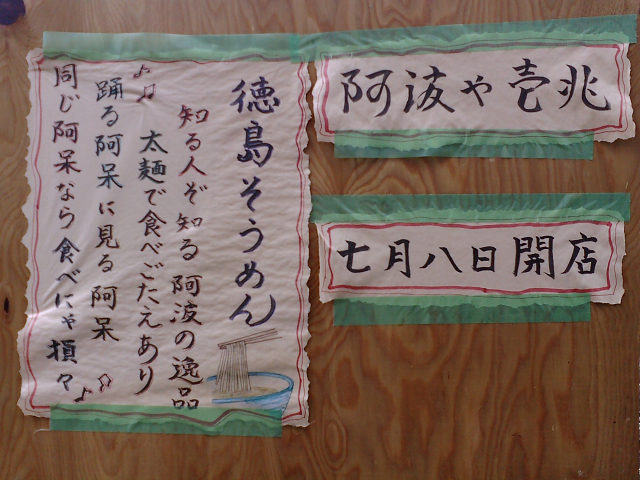 阿波や壱兆
七月八日開店
徳島そうめん
知る人ぞ知る 阿波の逸品
太麺で食べごたえあり
♪♫踊る阿呆に見る阿呆
同じ阿呆なら食べにゃ損々♪♫